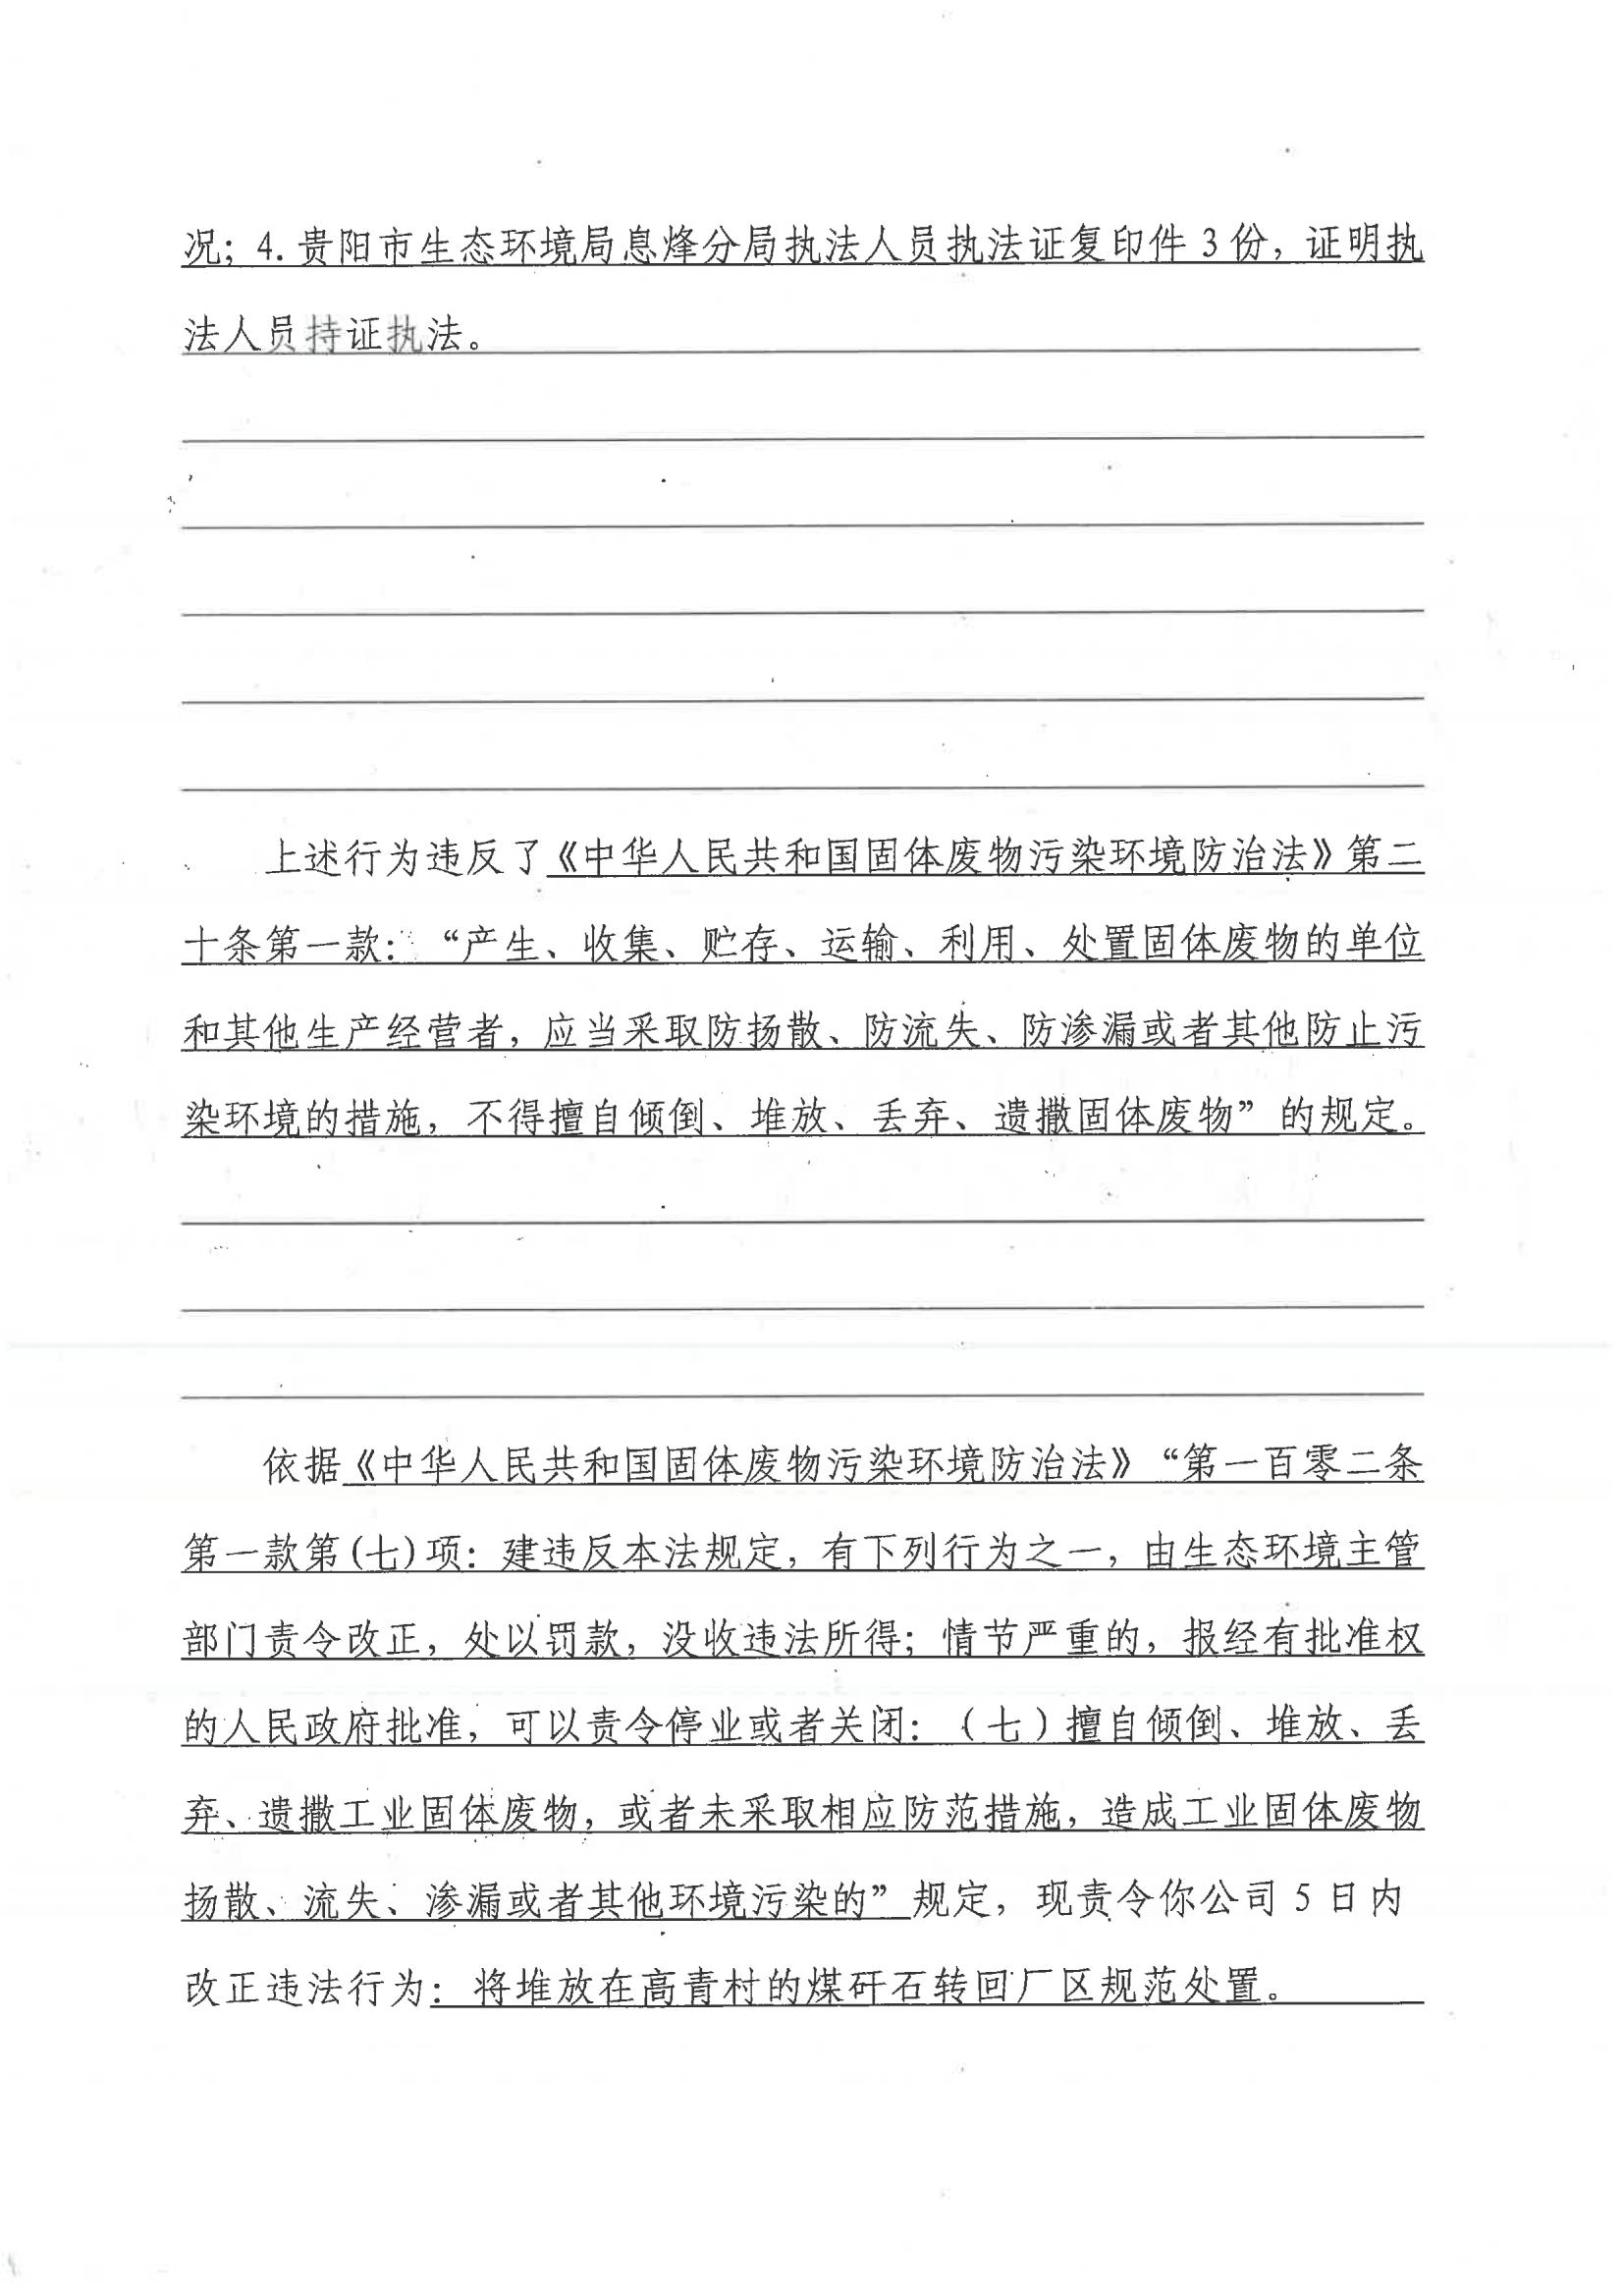 况；4.贵阳市生态环境局息烽分局执法人员执法证复印件3份，证明执
法人员持证执法。
上述行为违反了《中华人民共和国固体废物污染环境防治法》第二
十条第一款：“产生、收集、贮存、运输、利用、处置固体废物的单位
和其他生产经营者，应当采取防扬散、防流失、防渗漏或者其他防止污
染环境的措施，不得擅自倾倒、堆放、丢弃、遗撒固体废物”的规定。
依据《中华人民共和国固体废物污染环境防治法》“第一百零二条
第一款第(七)项：建违反本法规定，有下列行为之一，由生态环境主管
部门责令改正，处以罚款，没收违法所得；情节严重的，报经有批准权
的人民政府批准，可以责令停业或者关闭：（七）擅自倾倒、堆放、丢
弃、遗撒工业固体废物，或者未采取相应防范措施，造成工业固体废物
扬散、流失、渗漏或者其他环境污染的”规定，现责令你公司5日内
改正违法行为：将堆放在高青村的煤矸石转回厂区规范处置。